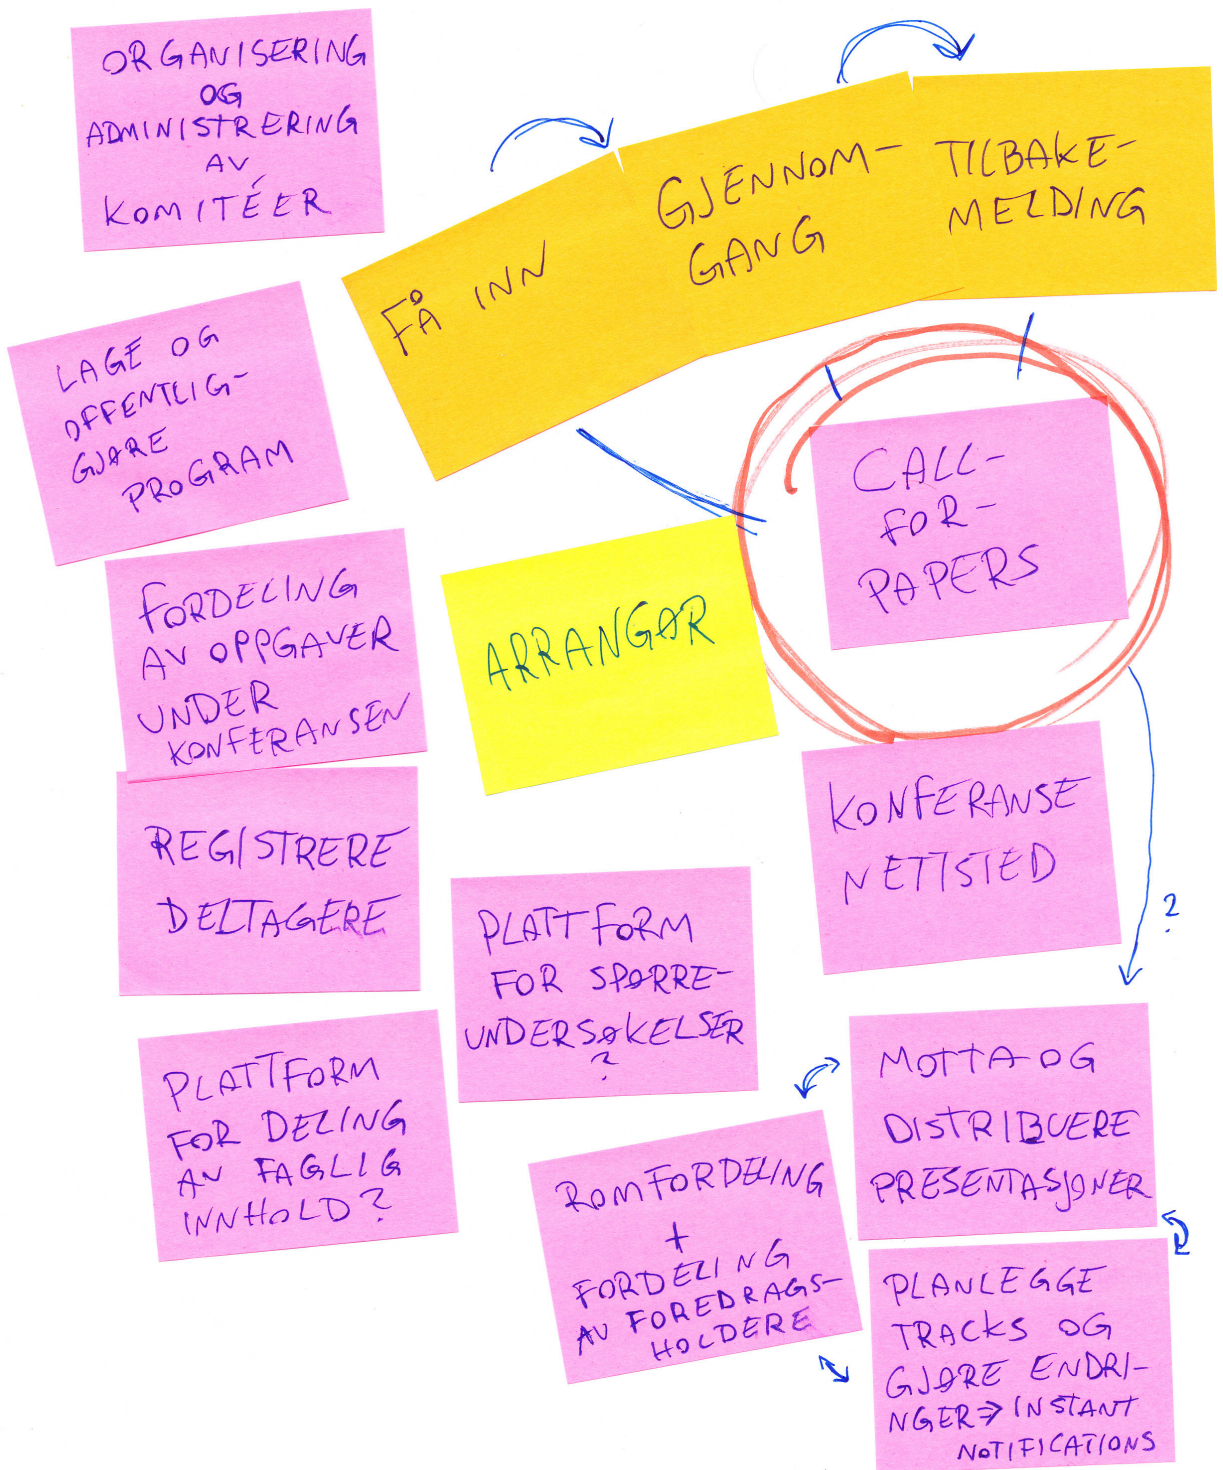 ORGANISERING
OG
ADMINISTRERING
AV
KOMITÉER
FÅ INN
GJENNOM-
GANG
TILBAKE-
MELDING
LAGE OG
OFFENTLIG-
GJØRE
PROGRAM
CALL-
FOR-
PAPERS
FORDELING
AV OPPGAVER
UNDER
KONFERANSEN
ARRANGØR
KONFERANSE
NETTSTED
REGISTRERE
DELTAGERE
?
PLATTFORM
FOR SPØRRE-
UNDERSØKELSER
?
PLATTFORM
FOR DELING
AV FAGLIG
INNHOLD?
MOTTA OG
DISTRIBUERE
PRESENTASJONER
ROMFORDELING
+
FORDELING
AV FOREDRAGS-
HOLDERE
PLANLEGGE
TRACKS OG
GJØRE ENDRI-
NGER ⇒ INSTANT
NOTIFICATIONS